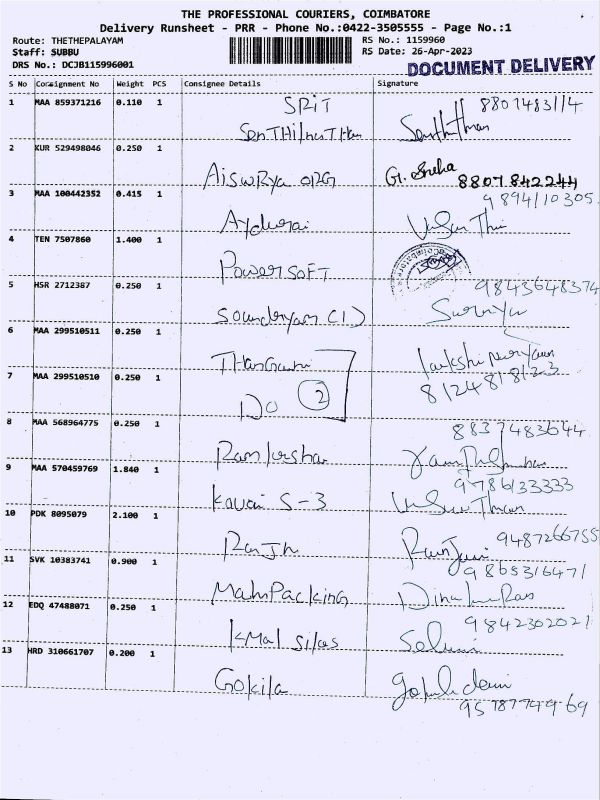 THE PROFESSIONAL COURIERS, COIMBATORE
Delivery Runsheet - PRR - Phone No.:0422-3505555 - Page No.:1
Route: THETHEPALAYAM
RS No.: 1159960
Staff: SUBBU
RS Date: 26-Apr-2023
DRS No.: DCJB115996001
DOCUMENT DELIVERY
S No Consignment No Weight PCS Consignee Details Signature
1 MAA 859371216 0.110 1 SRIT
2 KUR 529498046 0.250 1
Aiswarya ORG G. Sneha 8807842244
3 MAA 100442352 0.415 1
9894110305
Aydurai
4 TEN 7507860 1.400 1
Power SOFT
5 HSR 2712387 0.250 1
9843648374
Soundryam (1)
6 MAA 299510511 0.250 1
7 MAA 299510510 0.250 1
8124818123
DO 2
8 MAA 568964775 0.250 1
8837483644
9 MAA 570459769 1.840 1
9786133333
Kovai S-3
10 PDK 8095079 2.100 1
9487266755
11 SVK 10383741 0.900 1
9865316471
Mahn Packing
12 EDQ 47488071 0.250 1
9842302021
13 HRD 310661707 0.200 1
Gokila
9578774969